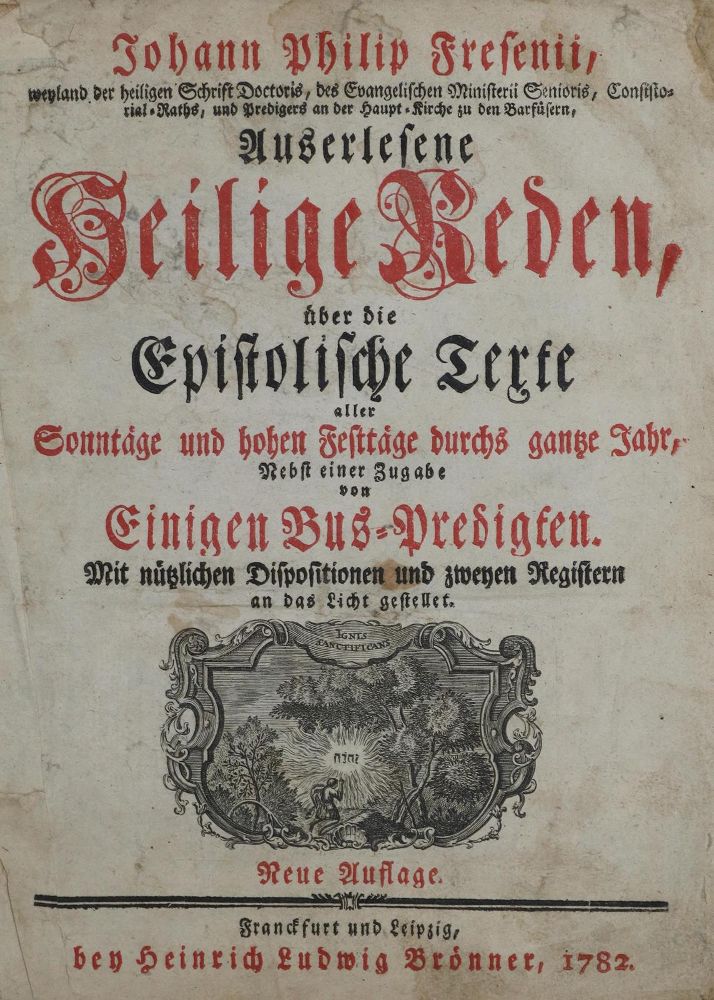 Johann Philip Fresenii,
weyland der heiligen Schrift Doctoris, des Evangelischen Ministerii Senioris, Consisto-
rial-Raths, und Predigers an der Haupt-Kirche zu den Barfüsern,
Auserlesene
Heilige Reden,
über die
Epistolische Texte
aller
Sonntäge und hohen Festtäge durchs gantze Jahr,
Nebst einer Zugabe
von
Einigen Bus-Predigten.
Mit nützlichen Dispositionen und zweyen Registern
an das Licht gestellet.
IGNIS
SANCTIFICANS
יהוה
Neue Auflage.
Franckfurt und Leipzig,
bey Heinrich Ludwig Brönner, 1782.